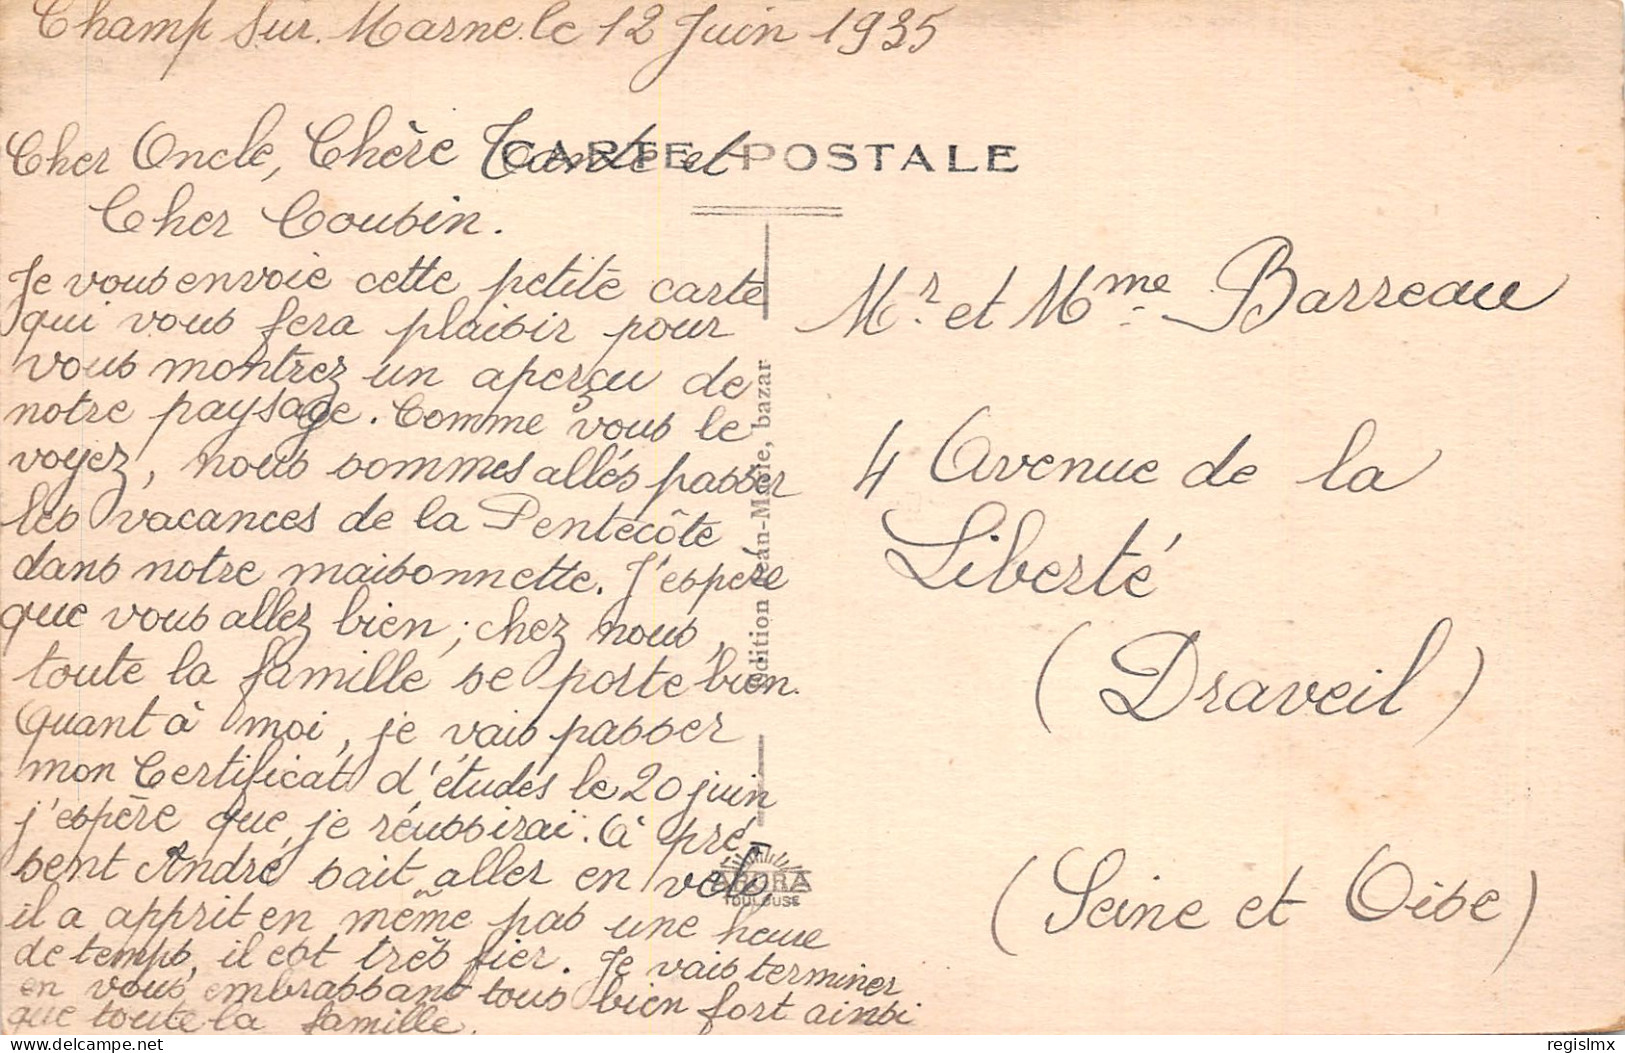 Champ sur Marne le 12 Juin 1935
Cher Oncle, Chère Tante et
CARTE POSTALE
Cher Cousin.
Je vous envoie cette petite carte
qui vous fera plaisir pour
vous montrez un aperçu de
notre paysage. Comme vous le
voyez, nous sommes allés passer
les vacances de la Pentecôte
dans notre maisonnette. J'espère
que vous allez bien ; chez nous,
toute la famille se porte bien.
Quant à moi, je vais passer
mon Certificat d'études le 20 juin
j'espère que je réussirai. A pré-
sent André sait aller en vélo,
il a apprit en même pas une heure
de temps, il est très fier. Je vais terminer
en vous embrassant tous bien fort ainsi
que toute la famille.
Edition Jean-Marie, bazar
TOULOUSE
Mr. et Mme Barreau
4 Avenue de la
Liberté
(Draveil)
(Seine et Oise)
delcampe.net
regislmx